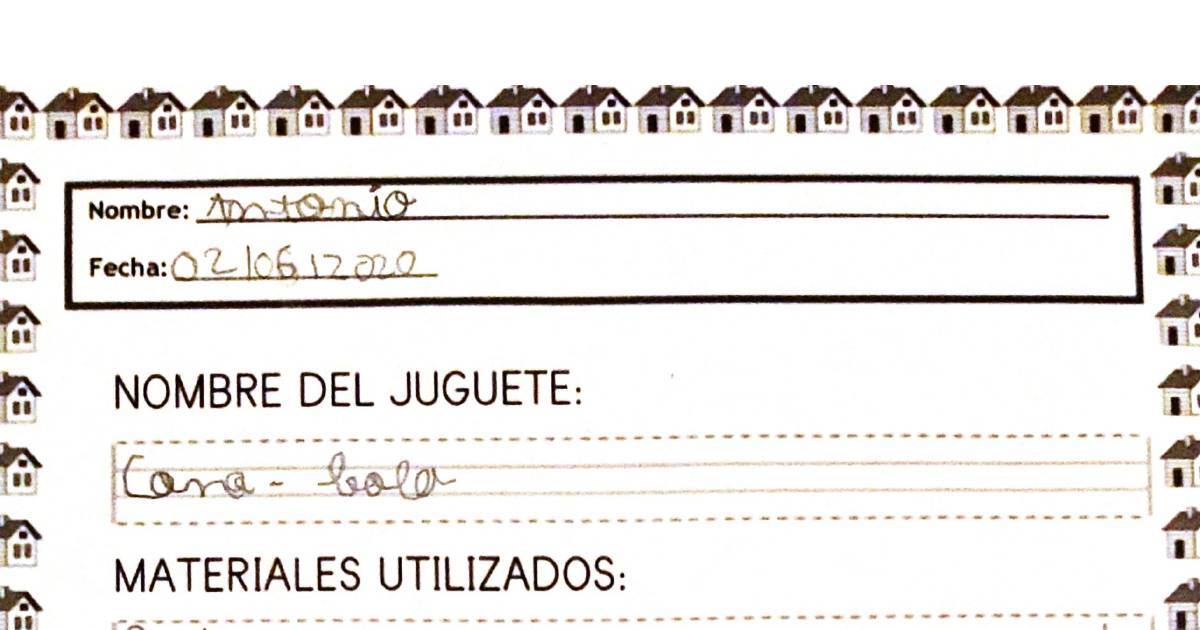 Nombre: Antonio
Fecha: 02/06/2020
NOMBRE DEL JUGUETE:
Cara - bola
MATERIALES UTILIZADOS: